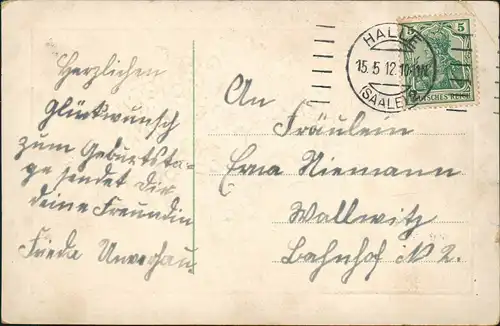 Herzlichen
Glückwunsch
zum Geburtsta-
ge sendet Dir
deine Freundin
Frieda
An
Fräulein
Erna Niemann
Wallwitz
Bahnhof N 2.
HALLE
15.5.12.10-11V.
(SAALE)
5
DEUTSCHES REICH